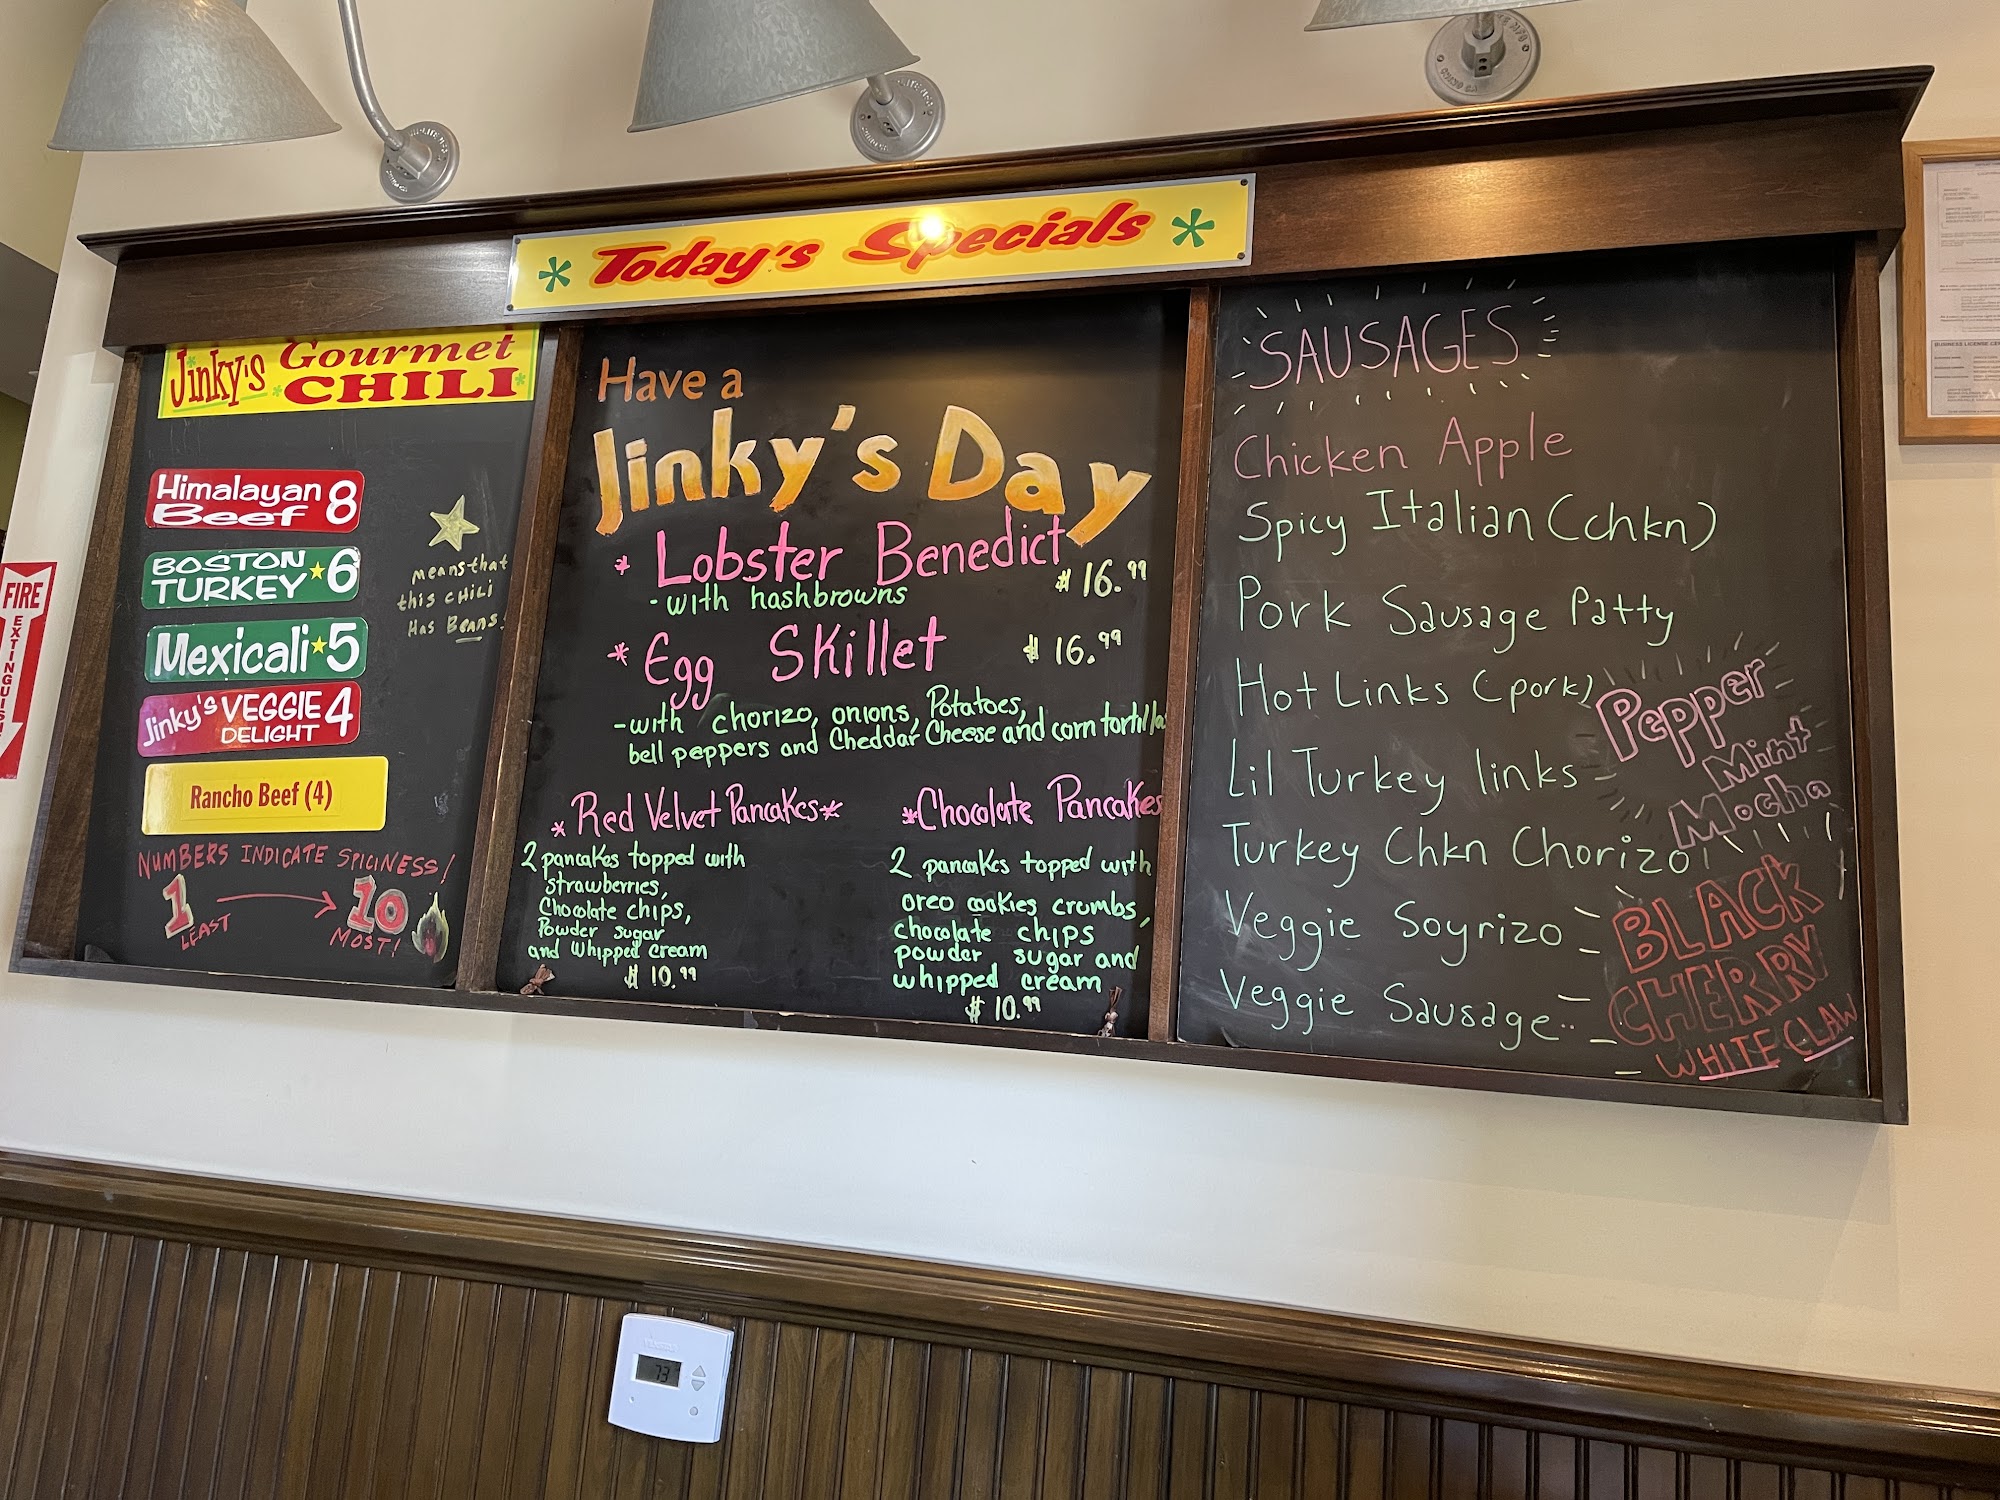 * Today's Specials *
Jinky's Gourmet
CHILI
Himalayan
Beef 8
BOSTON
TURKEY 6
Mexicali 5
Jinky's VEGGIE
DELIGHT 4
Rancho Beef (4)
means that
this CHILI
Has Beans!
NUMBERS INDICATE SPICINESS!
1 10
LEAST MOST!
Have a
Jinky's Day
* Lobster Benedict
- with hashbrowns $16.99
* Egg Skillet $16.99
- with chorizo, onions, Potatoes,
bell peppers and Cheddar Cheese and corn tortillas
* Red Velvet Pancakes *
2 pancakes topped with
strawberries,
Chocolate chips,
Powder sugar
and whipped cream
$10.99
* Chocolate Pancakes
2 pancakes topped with
oreo cookies crumbs,
chocolate chips
powder sugar and
whipped cream
$10.99
SAUSAGES
Chicken Apple
Spicy Italian (chkn)
Pork Sausage Patty
Hot Links (pork)
Lil Turkey links
Turkey Chkn Chorizo
Veggie Soyrizo
Veggie Sausage..
Pepper
Mint
Mocha
BLACK
CHERRY
WHITE CLAW
FIRE
EXTINGUISH
73